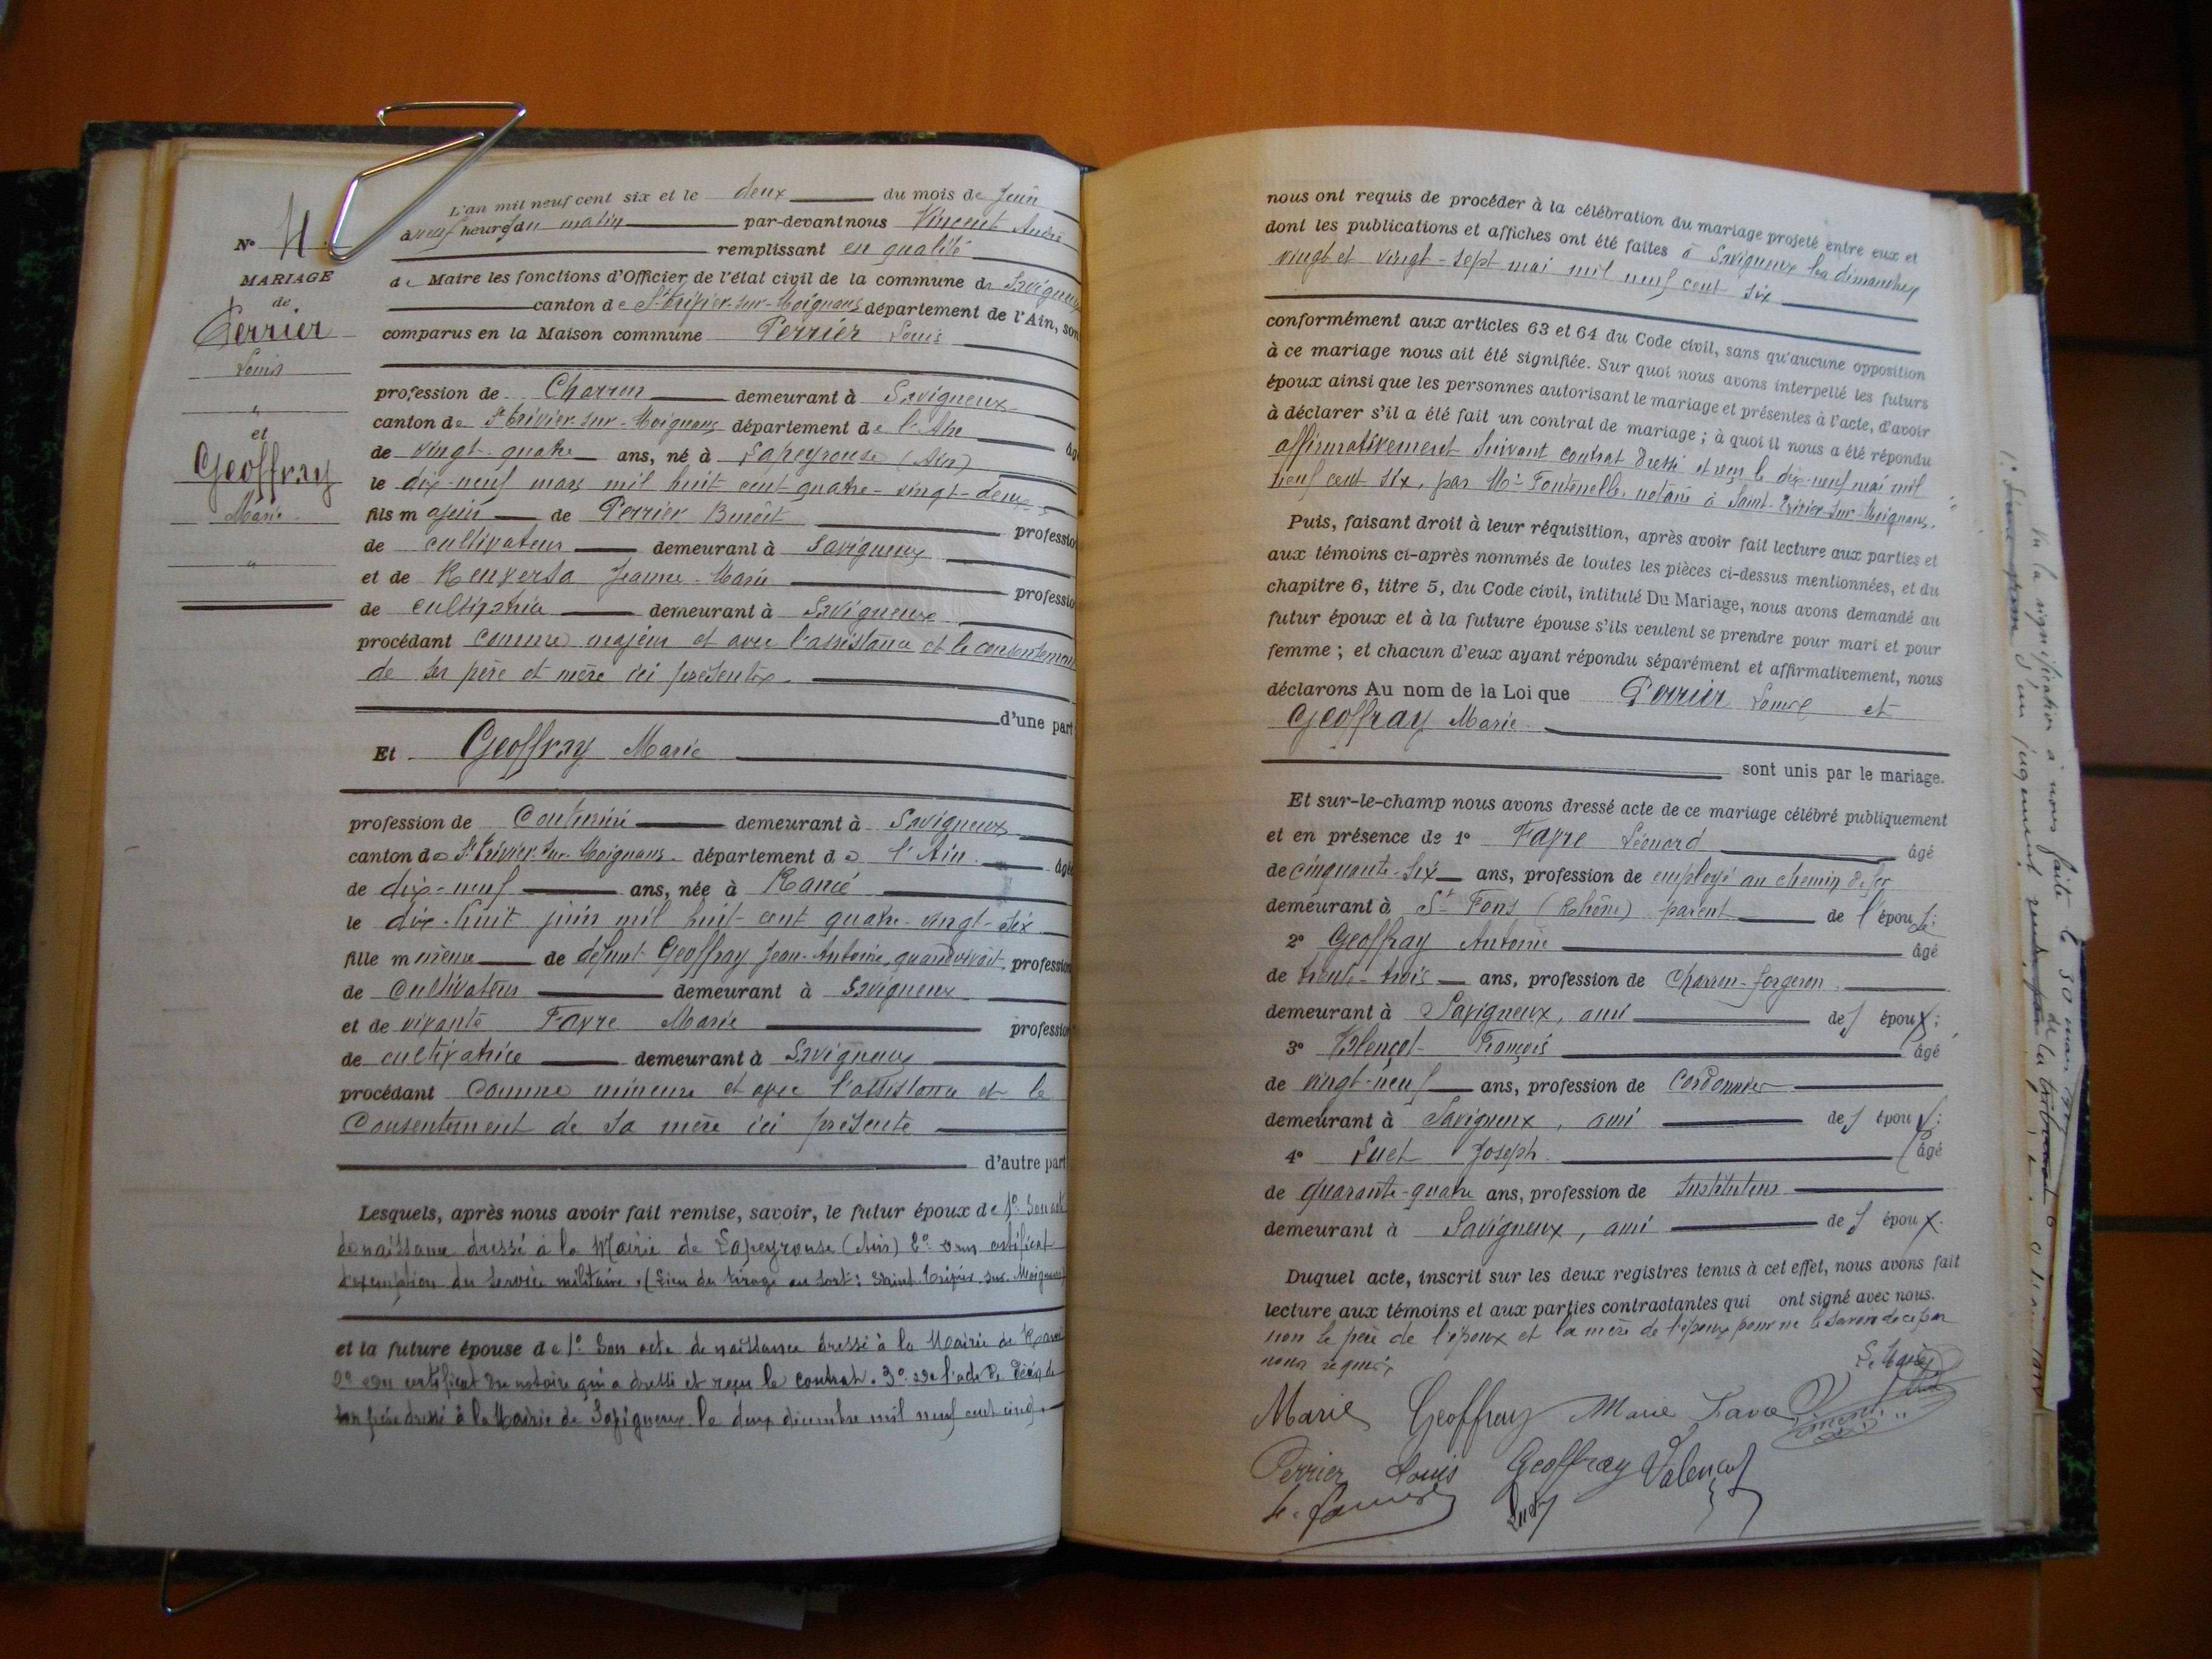 L'an mil neuf cent six et le deux du mois de Juin
à neuf heures du matin par-devant nous Vincent André
remplissant en qualité
de Maire les fonctions d'Officier de l'état civil de la commune de Savigneux
canton de St Trivier-sur-Moignans département de l'Ain, son
comparus en la Maison commune Perrier Louis
N° 4
MARIAGE
de
Perrier
Louis
"
et
Geoffray
Marie
"
profession de Charron demeurant à Savigneux
canton de St Trivier-sur-Moignans département de l'Ain âg
de vingt-quatre ans, né à Lapeyrouse (Ain)
le dix-neuf mars mil huit cent quatre-vingt-deux
fils majeur de Perrier Benoît profession
de cultivateur demeurant à Savigneux
et de Jeanne-Marie professio
de cultivatrice demeurant à Savigneux
procédant comme majeur et avec l'assistance et le consentement
de ses père et mère ici présents
d'une part
Et Geoffray Marie
profession de Couturière demeurant à Savigneux
canton de St Trivier-sur-Moignans département de l'Ain âgé
de dix-neuf ans, née à Rancé
le dix-huit juin mil huit cent quatre-vingt-six
fille mineure de défunt Geoffray Jean-Antoine, quand vivait, profession
de Cultivateur demeurant à Savigneux
et de vivante Favre Marie profession
de cultivatrice demeurant à Savigneux
procédant comme mineure et avec l'assistance et le
Consentement de sa mère ici présente
d'autre part
Lesquels, après nous avoir fait remise, savoir, le futur époux de 1° Son acte
de naissance dressé à la Mairie de Lapeyrouse (Ain) 2° d'un certificat
d'exemption du service militaire, (Lieu du tirage au sort: Saint Trivier-sur-Moignans)
et la future épouse de 1° Son acte de naissance dressé à la Mairie de Rancé
2° d'un certificat du notaire qui a dressé et reçu le contrat. 3° de l'acte de décès de
son père dressé à la Mairie de Savigneux le deux décembre mil neuf cent cinq
nous ont requis de procéder à la célébration du mariage projeté entre eux et
dont les publications et affiches ont été faites à Savigneux les dimanches
vingt et vingt-sept mai mil neuf cent six
conformément aux articles 63 et 64 du Code civil, sans qu'aucune opposition
à ce mariage nous ait été signifiée. Sur quoi nous avons interpellé les futurs
époux ainsi que les personnes autorisant le mariage et présentes à l'acte, d'avoir
à déclarer s'il a été fait un contrat de mariage ; à quoi il nous a été répondu
affirmativement suivant contrat dressé et reçu le dix-neuf mai mil
neuf cent six, par Me Fontenelle, notaire à Saint-Trivier-sur-Moignans.
Puis, faisant droit à leur réquisition, après avoir fait lecture aux parties et
aux témoins ci-après nommés de toutes les pièces ci-dessus mentionnées, et du
chapitre 6, titre 5, du Code civil, intitulé Du Mariage, nous avons demandé au
futur époux et à la future épouse s'ils veulent se prendre pour mari et pour
femme ; et chacun d'eux ayant répondu séparément et affirmativement, nous
déclarons Au nom de la Loi que Perrier Louis et
Geoffray Marie
sont unis par le mariage.
Et sur-le-champ nous avons dressé acte de ce mariage célébré publiquement
et en présence de 1° Favre Léonard âgé
de cinquante-six ans, profession de employé au chemin de fer
demeurant à St Fons (Rhône) parent de l'épouse;
2° Geoffray Antoine âgé
de trente-trois ans, profession de Charron-forgeron
demeurant à Savigneux, ami des époux;
3° Valençot François âgé
de vingt-neuf ans, profession de Cordonnier
demeurant à Savigneux, ami des époux;
4° Luet Joseph âgé
de quarante-quatre ans, profession de Instituteur
demeurant à Savigneux, ami des époux.
Duquel acte, inscrit sur les deux registres tenus à cet effet, nous avons fait
lecture aux témoins et aux parties contractantes qui ont signé avec nous.
non le père de l'époux et la mère de l'époux pour ne le savoir de ce par
nous requis
Le Maire
Marie Geoffray Marie Favre Vincent
Perrier Louis Geoffray Valençot
Luet
Vu la signification à nous faite le 30 mars
d'un jugement de